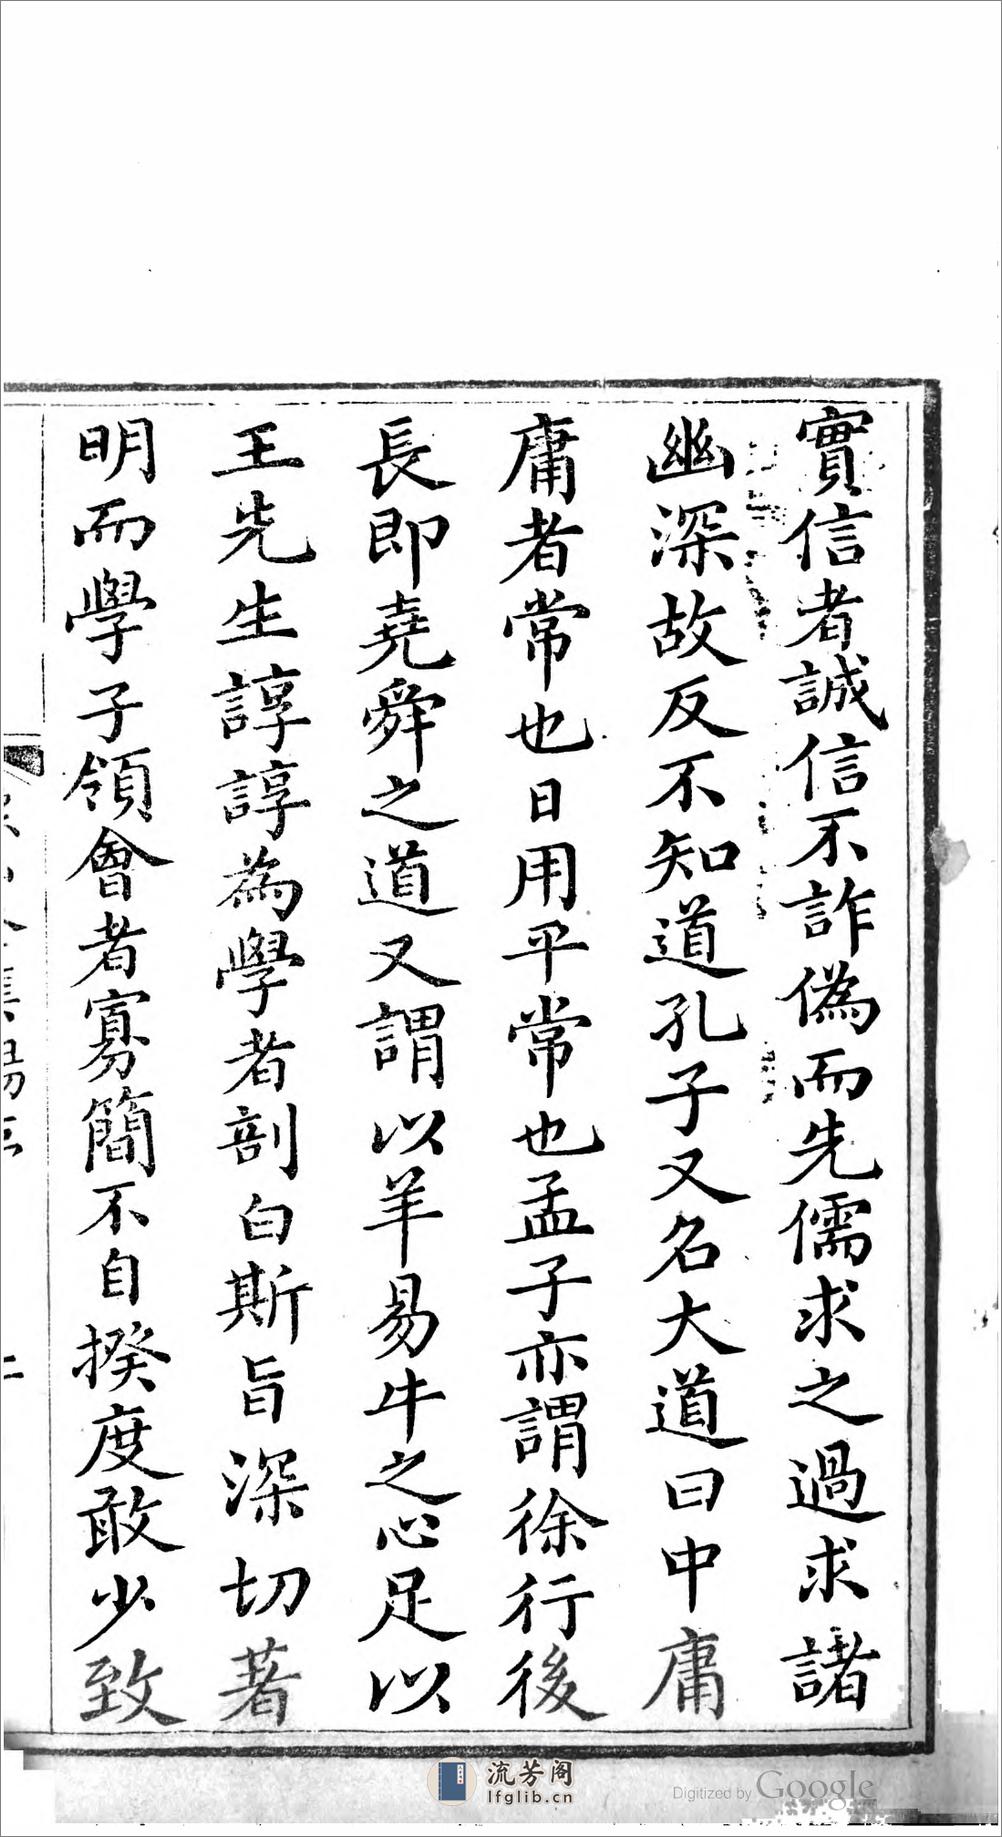 實信者誠信不詐偽而先儒求之過求諸
幽深故反不知道孔子又名大道曰中庸
庸者常也日用平常也孟子亦謂徐行後
長即堯舜之道又謂以羊易牛之心足以
王先生諄諄為學者剖白斯旨深切著
明而學子領會者寡簡不自揆度敢少致
流芳阁
lfglib.cn
Digitized by Google